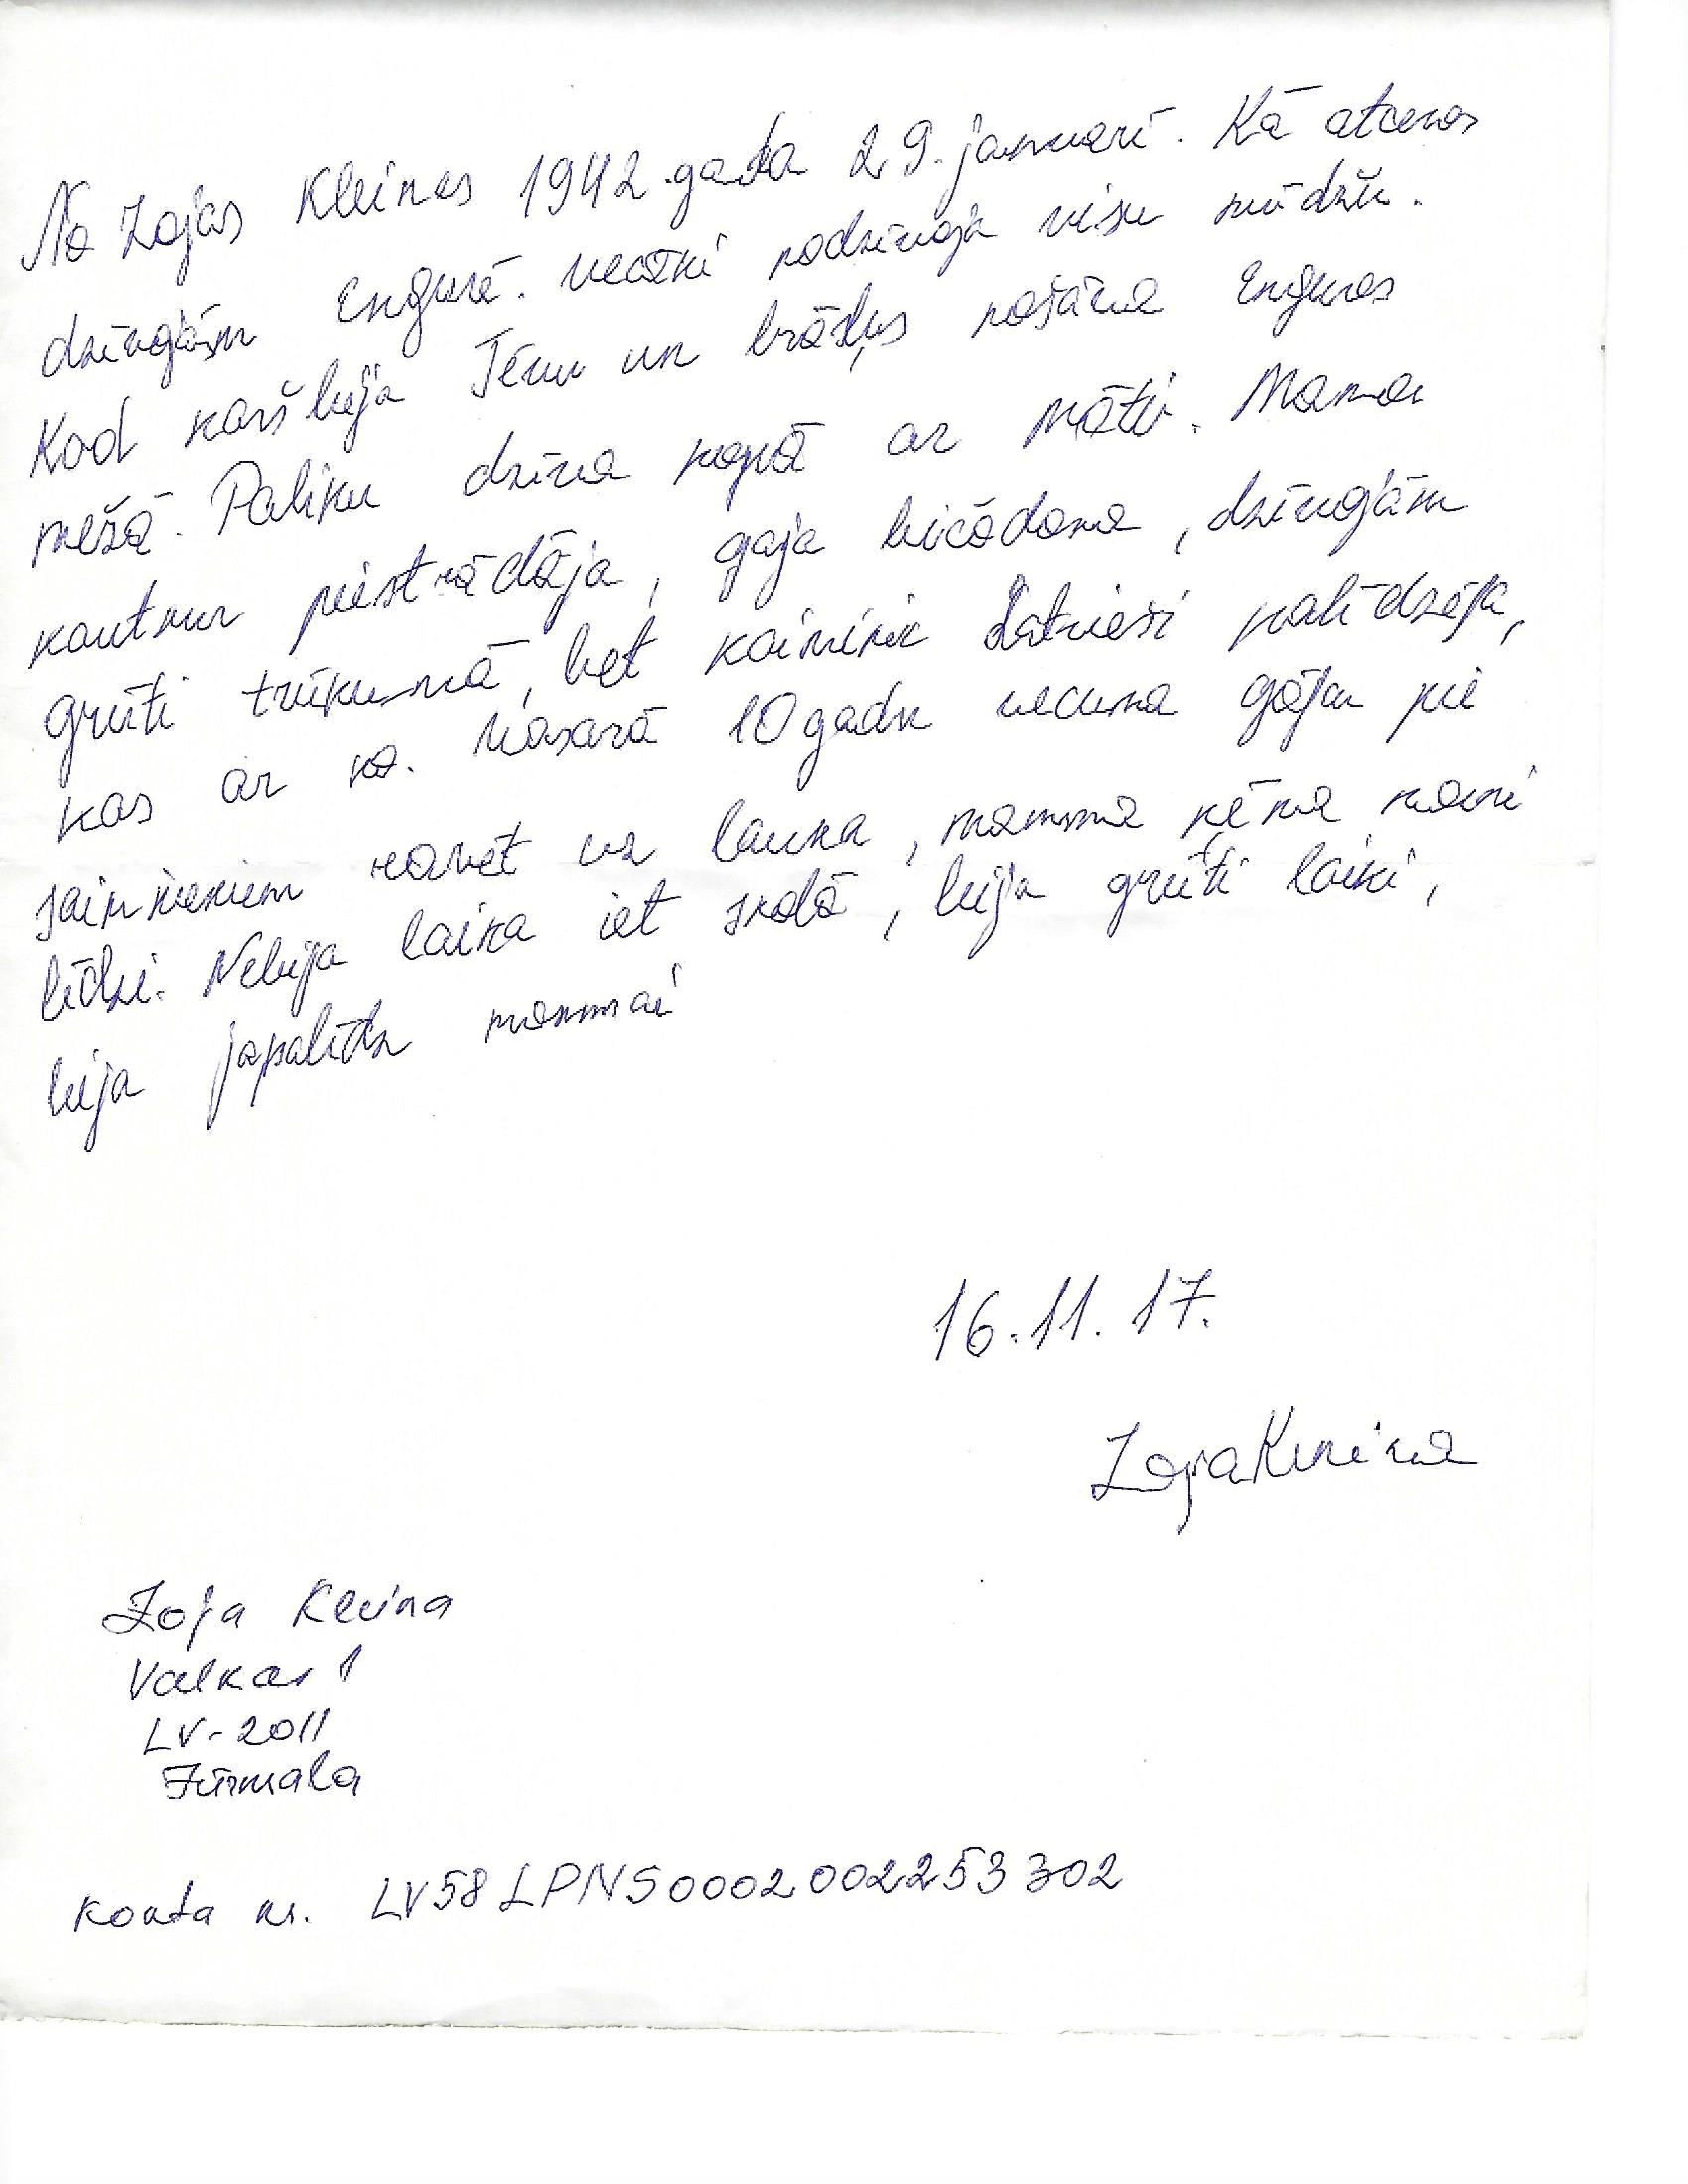 No Zojas Kleinas 1942 gada 29. januarī. Kā atceros
dzīvojām Engurē. Vecāki nodzīvoja visu mūdžu.
Kad karš bija Tēvu un brāļus nošāva Engures
mežā. Paliku dzīva kopā ar māti. Mama
kautkur piestrādāja, gaja ličādama, dzīvojām
grūti trūkumā, bet kaimiņi Latvieši palīdzēja,
kas ar ko. Vasarā 10 gadu vecuma gāju pie
saimniekiem ravēt uz lauka, mamma ņēma mani
līdzi. Nebija laika iet skolā, bija grūti laiki,
bija japalīdz mammai
16.11.17.
Zoja Kleina
Zoja Kleina
Valkas 1
LV-2011
Jūrmala
Konta nr. LV58LPNS0002002253302